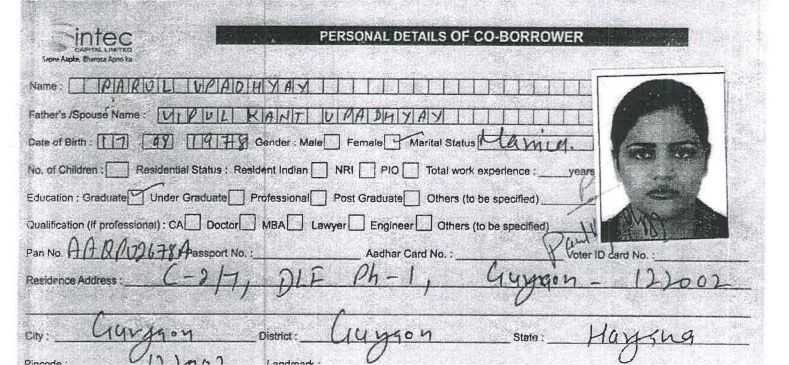 intec
CAPITAL LIMITED
Sapne Aapke, Bharosa Apno ka
PERSONAL DETAILS OF CO-BORROWER
Name : PARUL UPADHYAY
Father's /Spouse Name : VIPUL KANT UPADHYAY
Date of Birth : 17 08 1978 Gender : Male Female Marital Status
No. of Children : Residential Status : Resident Indian NRI PIO Total work experience : years
Education : Graduate Under Graduate Professional Post Graduate Others (to be specified)
Qualification (if professional) : CA Doctor MBA Lawyer Engineer Others (to be specified)
Pan No. Passport No. : Aadhar Card No. : Voter ID card No. :
Residence Address : C-2/7, DLF Ph-1, Gurgaon - 122002
City : Gurgaon District : Gurgaon State :
Pincode : 122002 Landmark :